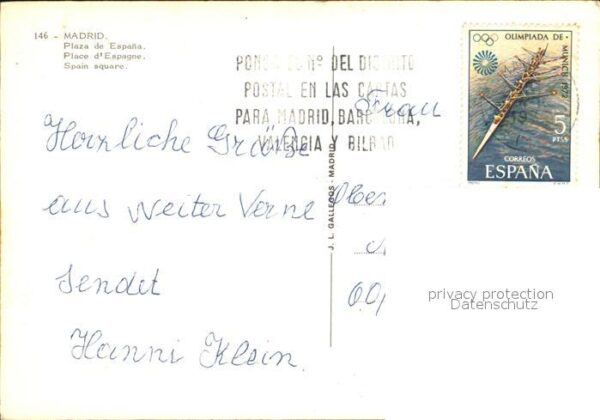 146 - MADRID.
Plaza de España.
Place d'Espagne.
Spain square.
PONGA EL Nº DEL DISTRITO
POSTAL EN LAS CARTAS
PARA MADRID, BARCELONA,
VALENCIA Y BILBAO
OLIMPIADA DE
MUNICH 1972
5
PTAS
CORREOS
ESPAÑA
Herzliche Grüße
aus Weiter Verne
Sendet
Hanni Klein.
J. L. GALLEGOS - MADRID
Frau
Ober
privacy protection
Datenschutz